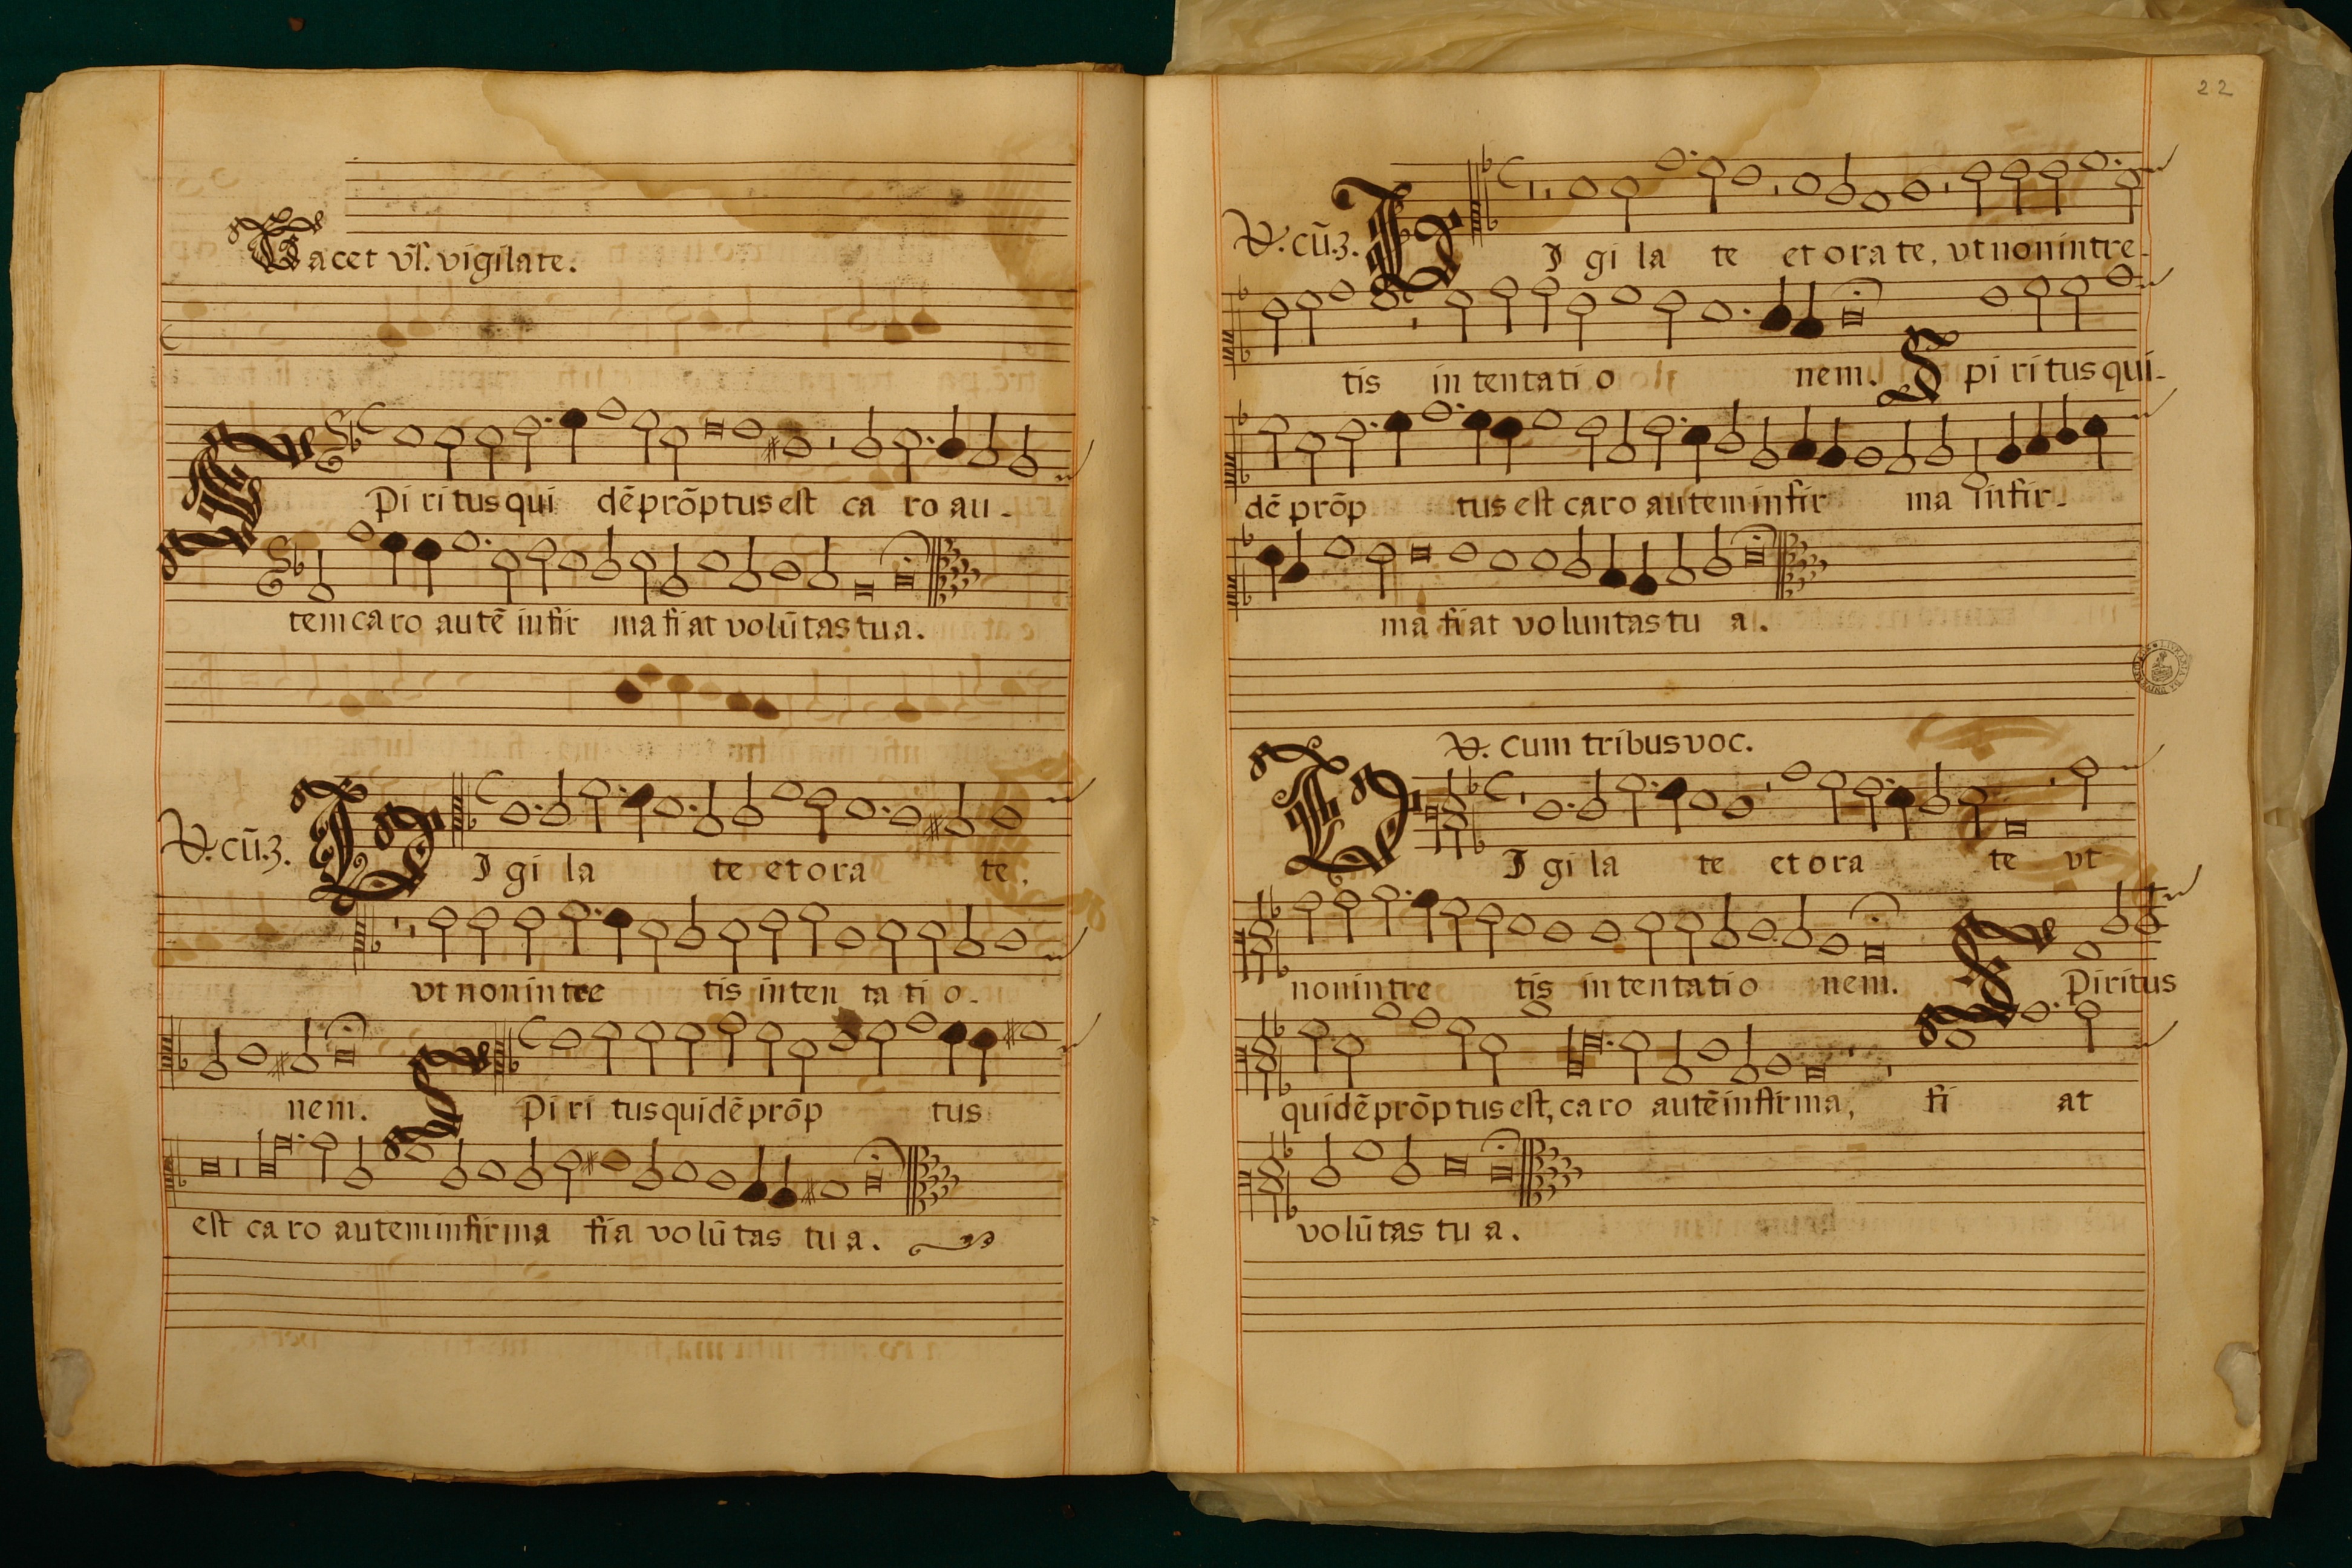 Tacet vs̃. vigilate.
SPi ri tus qui dẽ prõptus est ca ro au-
tem ca ro autẽ infir ma fiat volũtas tua.
V. cũ.3. VI gi la te et ora te,
vt non intre tis in ten ta ti o-
nem. SPi ri tus quidẽ prõp tus
est ca ro autem infirma fia volũ tas tu a.
22
V. cũ.3. VI gi la te et ora te, vt non intre-
tis in tentati o nem. Spi ri tus qui-
dẽ prõp tus est caro autem infir ma infir-
ma fiat voluntas tu a.
V. Cum tribus voc.
VI gi la te et ora te vt
non intre tis in tentatio nem. SPiritus
quidẽ prõptus est, ca ro autẽ infirma, fi at
volũtas tu a.